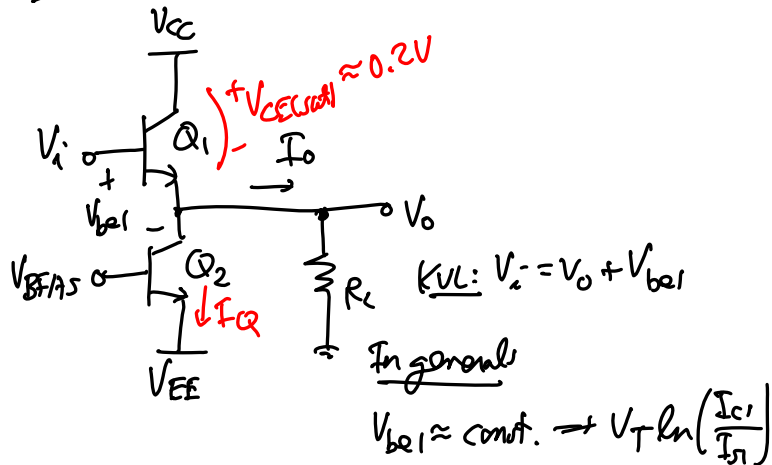 V_CC
+ V_CE(sat) ≈ 0.2V
-
V_i
Q_1
I_o
+
V_be1
-
V_o
V_BIAS
Q_2
I_Q
R_L
KVL: V_i = V_o + V_be1
V_EE
In general,
V_be1 ≈ const. → V_T ln(I_C1/I_S1)